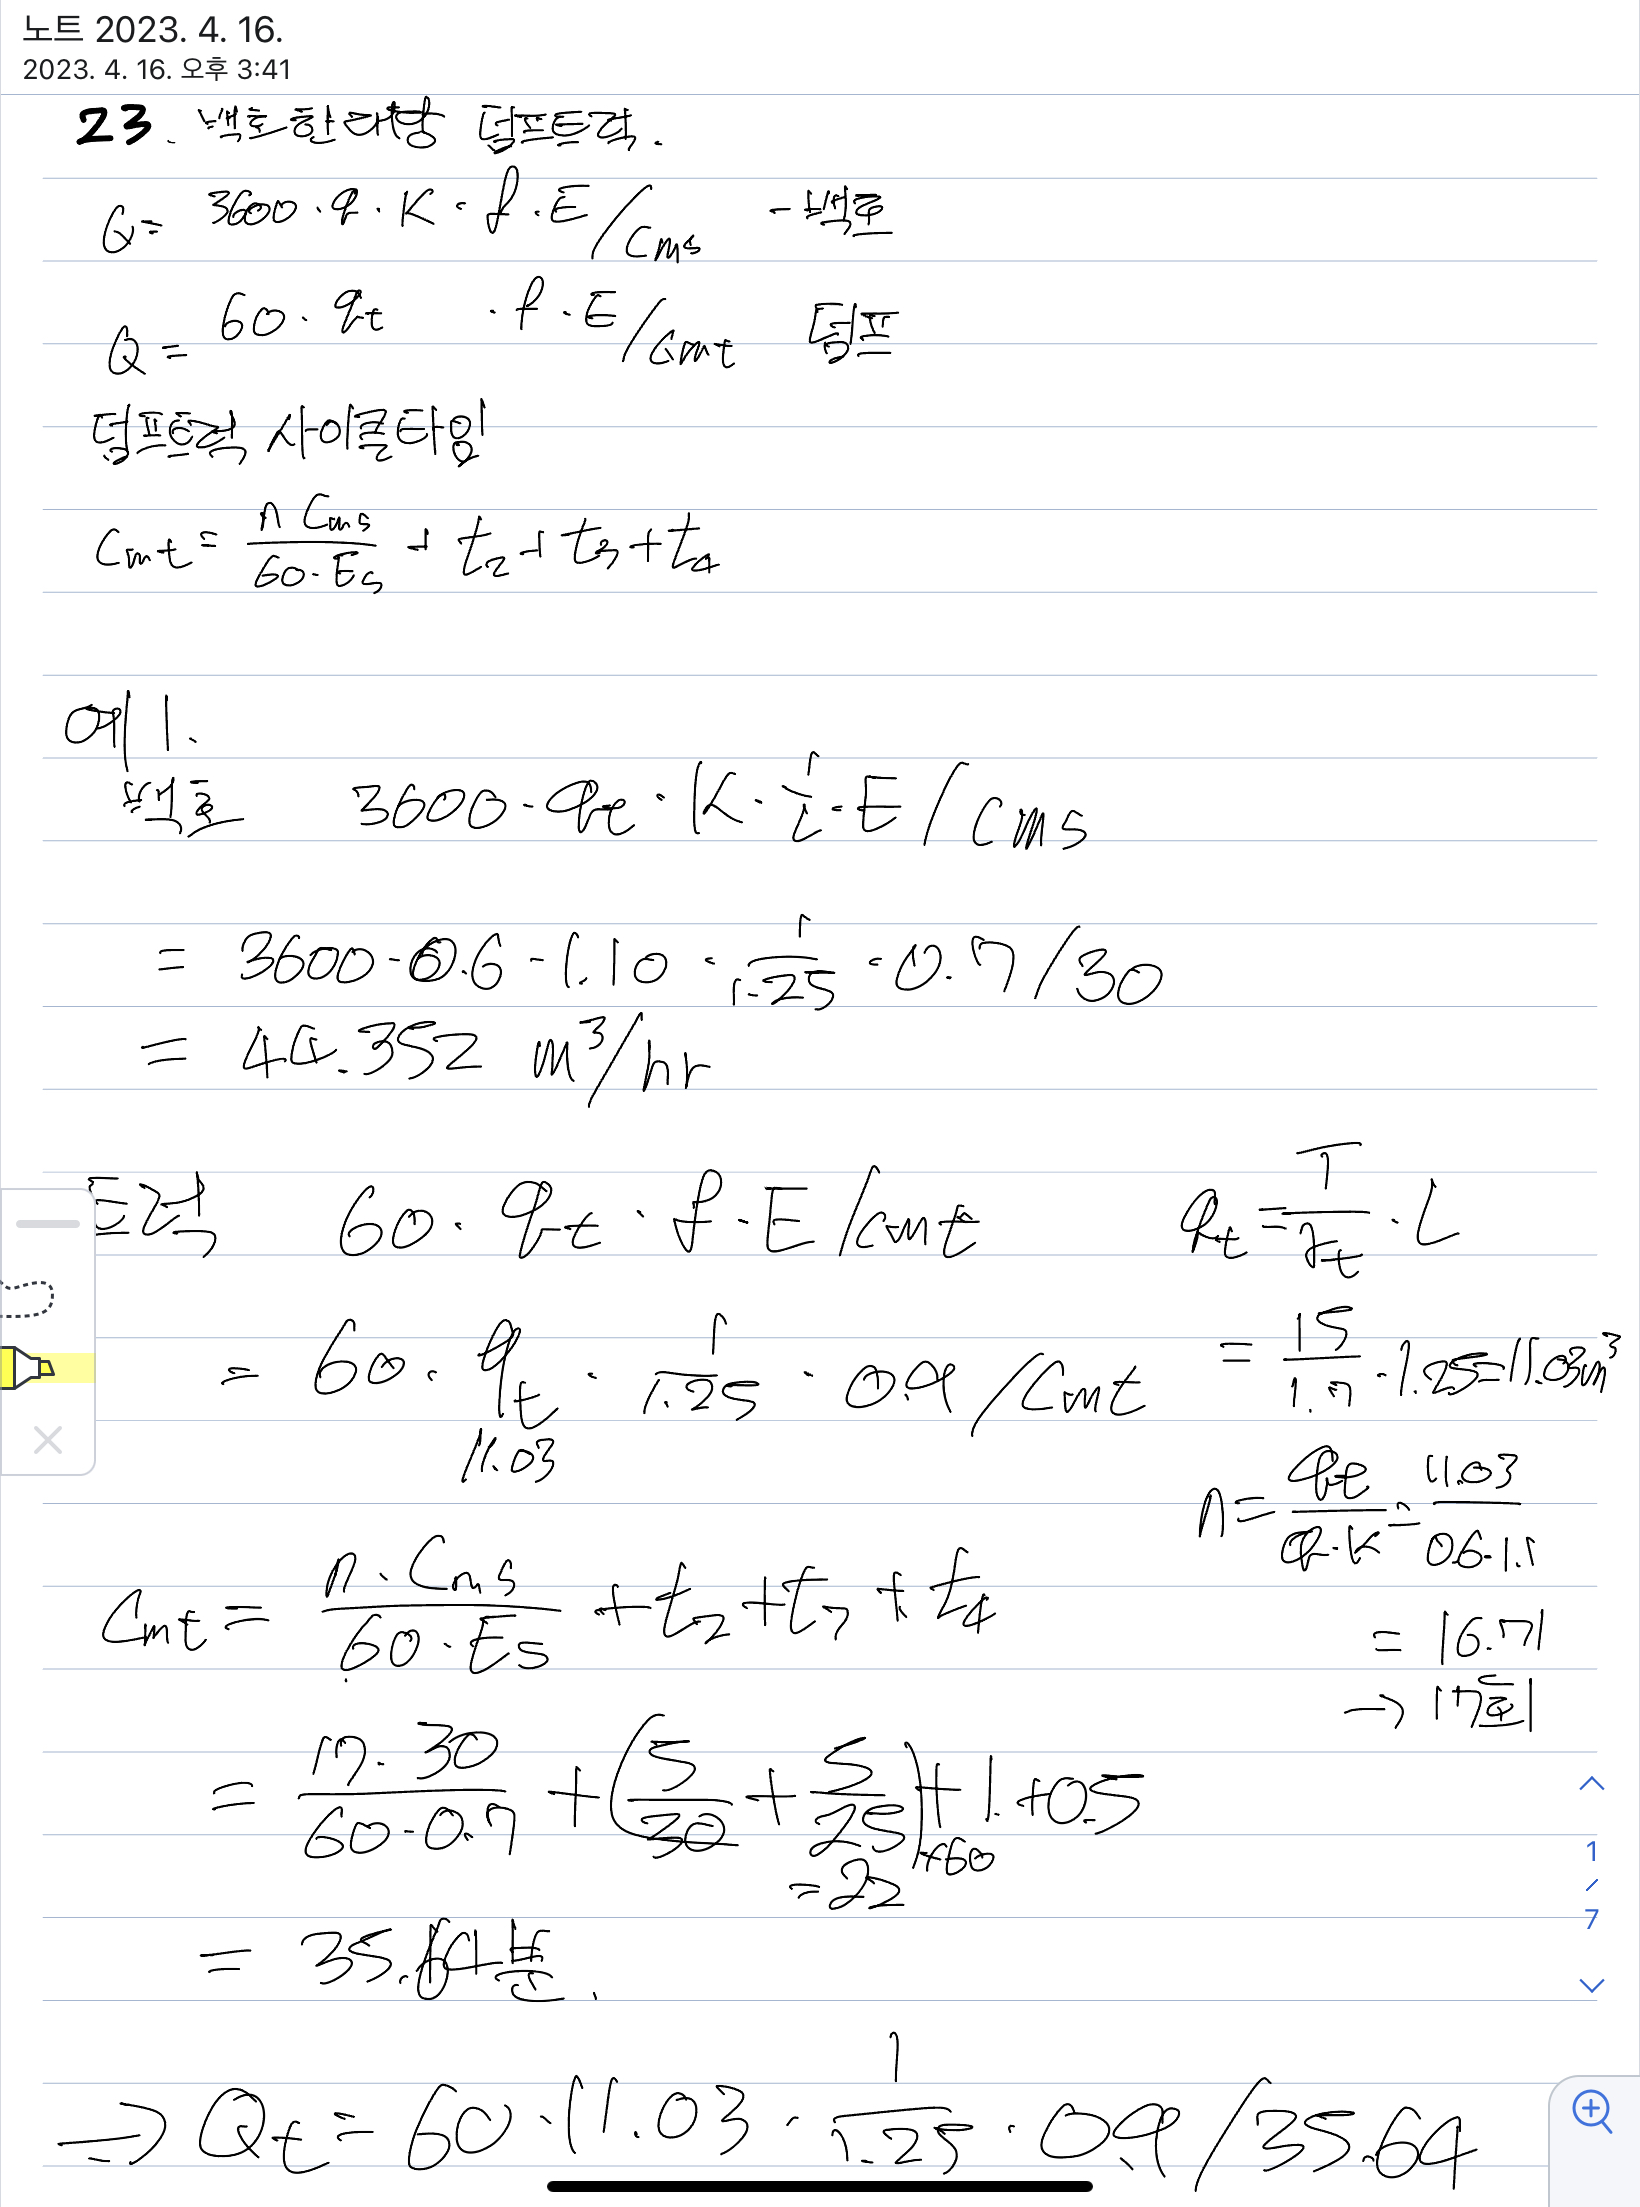 노트 2023. 4. 16.
2023. 4. 16. 오후 3:41
23. 백호한대당 덤프트럭.
Q= 3600·q·K·f·E/Cms - 백호
Q= 60·qt ·f·E/Cmt 덤프
덤프트럭 사이클타임
Cmt= n Cms / 60·Es + t2+t3+t4
예1.
백호 3600·qt·K·1/L·E/Cms
= 3600·0.6·1.10·1/1.25·0.7/30
= 44.352 m³/hr
트럭 60·qt·f·E/Cmt
qt=T/γt·L
= 60·qt·1/1.25·0.9/Cmt
11.03
= 15/1.7·1.25=11.03m³
n=qt/q·K=11.03/0.6·1.1
= 16.71
→ 17회
Cmt= n·Cms/60·Es +t2+t3+t4
= 17·30/60·0.7 +(5/30+5/25)×60+1.+0.5
=22
= 35.64분.
→ Qt=60·11.03·1/1.25·0.9/35.64
1
/
7